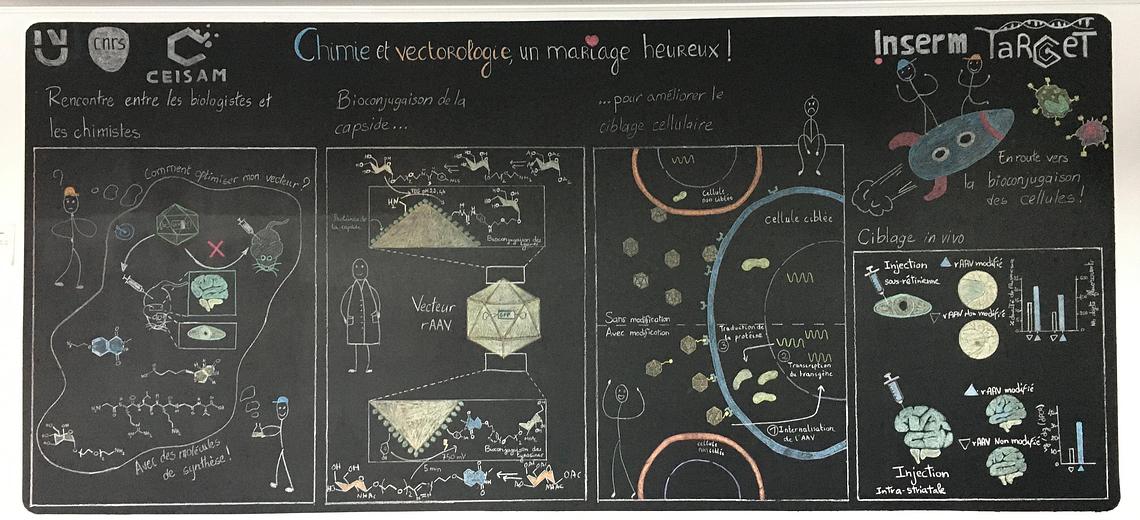 cnrs
CEISAM
Chimie et vectorologie, un mariage heureux !
Inserm
TaRGeT
Rencontre entre les biologistes et
les chimistes
Comment optimiser mon vecteur ?
Avec des molécules
de synthèse !
Bioconjugaison de la
capside...
Protéines de
la capside
Bioconjugaison des
lysines
Vecteur
rAAV
GFP
Bioconjugaison des
tyrosines
750 mV
5 min
OH
HO
OH
HO
NHAc
AcO
OAc
NHAc
OAc
...pour améliorer le
ciblage cellulaire
Cellule
non ciblée
Cellule ciblée
Sans modification
Avec modification
③ Traduction de
la protéine
②
Transcription
du transgène
① Internalisation
de l'AAV
Cellule
non ciblée
En route vers
la bioconjugaison
des cellules !
Ciblage in vivo
Injection
sous-rétinienne
rAAV modifié
rAAV Non modifié
Injection
Intra-striatale
rAAV modifié
rAAV Non modifié